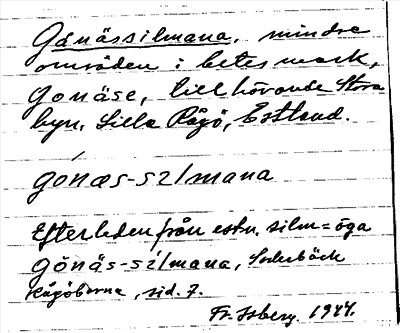 Gånässilmana, mindre
områden i betesmark,
Gonäse, tillhörande Stora
byn, Lilla Rågö, Estland.
gónæs-sìlmana
Efterleden från estn. silm = öga
Gönäs-sílmana, Söderbäck
Rågöborna, sid. 7.
Fr. Isberg. 1944.